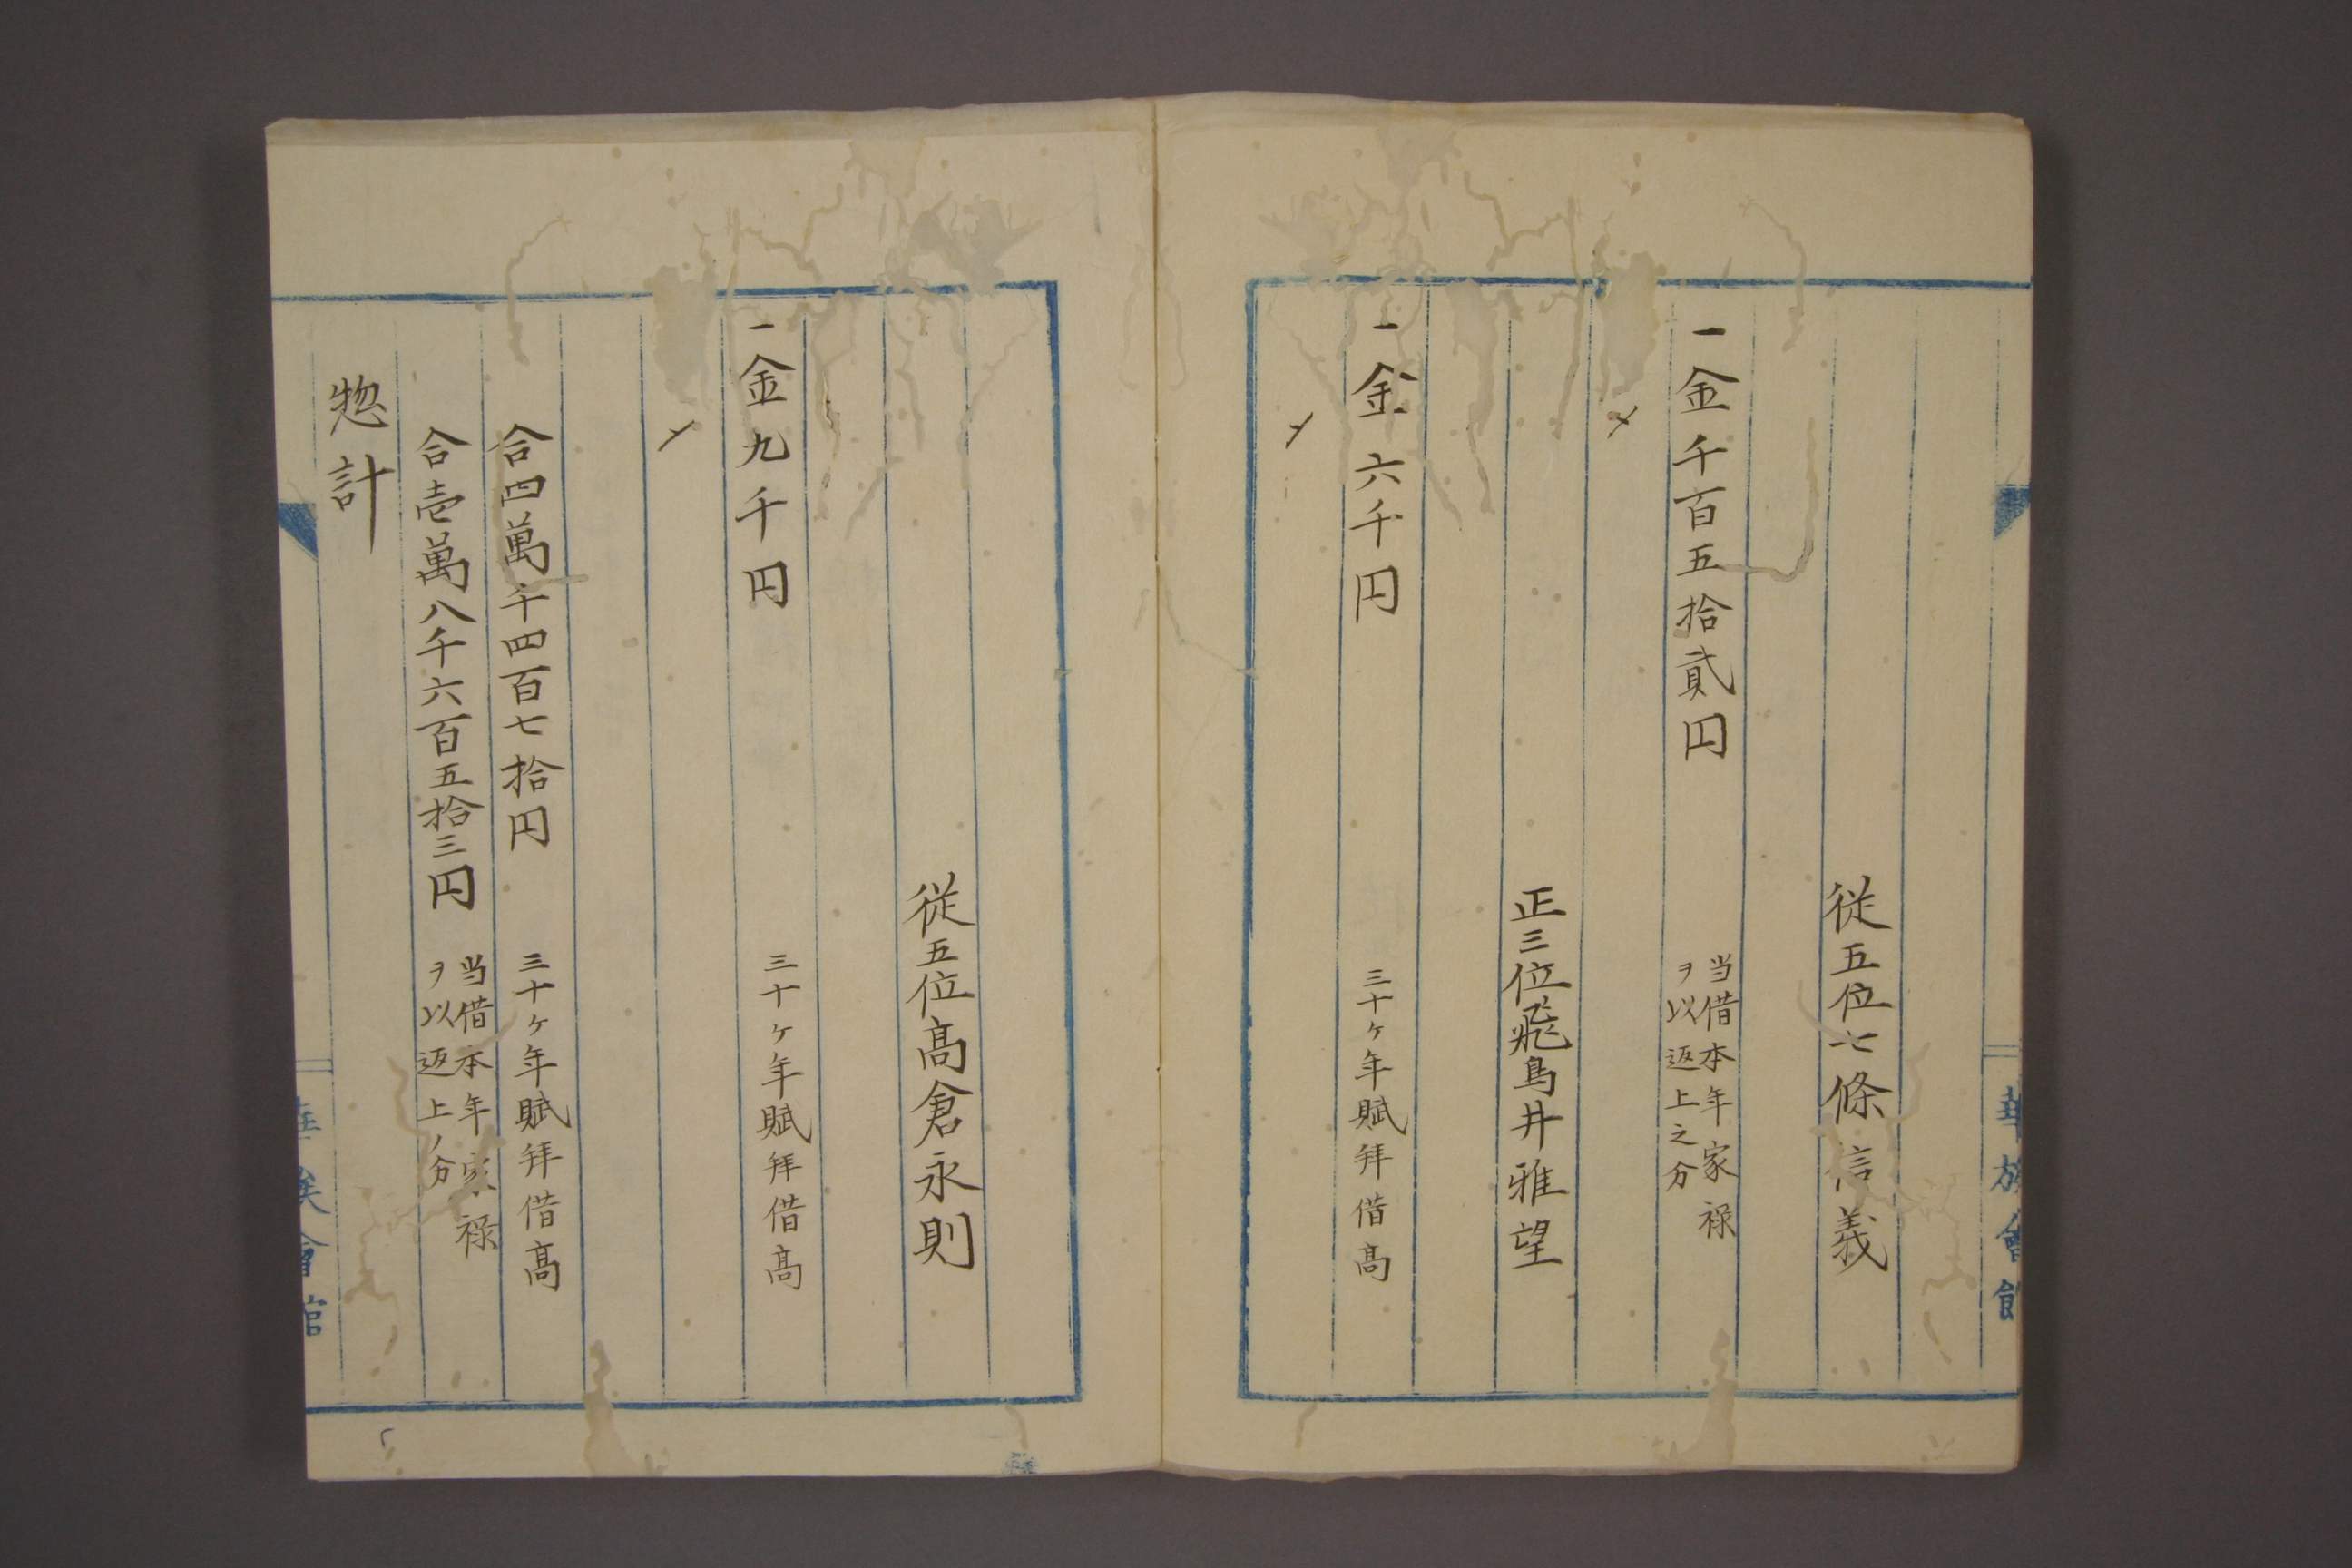 従五位七條信義
一金千百五拾貳円
当借本年家禄
ヲ以返上之分
〆
正三位飛鳥井雅望
一金六千円
三十ヶ年賦拜借髙
〆
従五位髙倉永則
一金九千円
三十ヶ年賦拜借髙
〆
合四萬千四百七拾円
三十ヶ年賦拜借髙
合壱萬八千六百五拾三円
当借本年家禄
ヲ以返上ノ分
惣計
華族會館